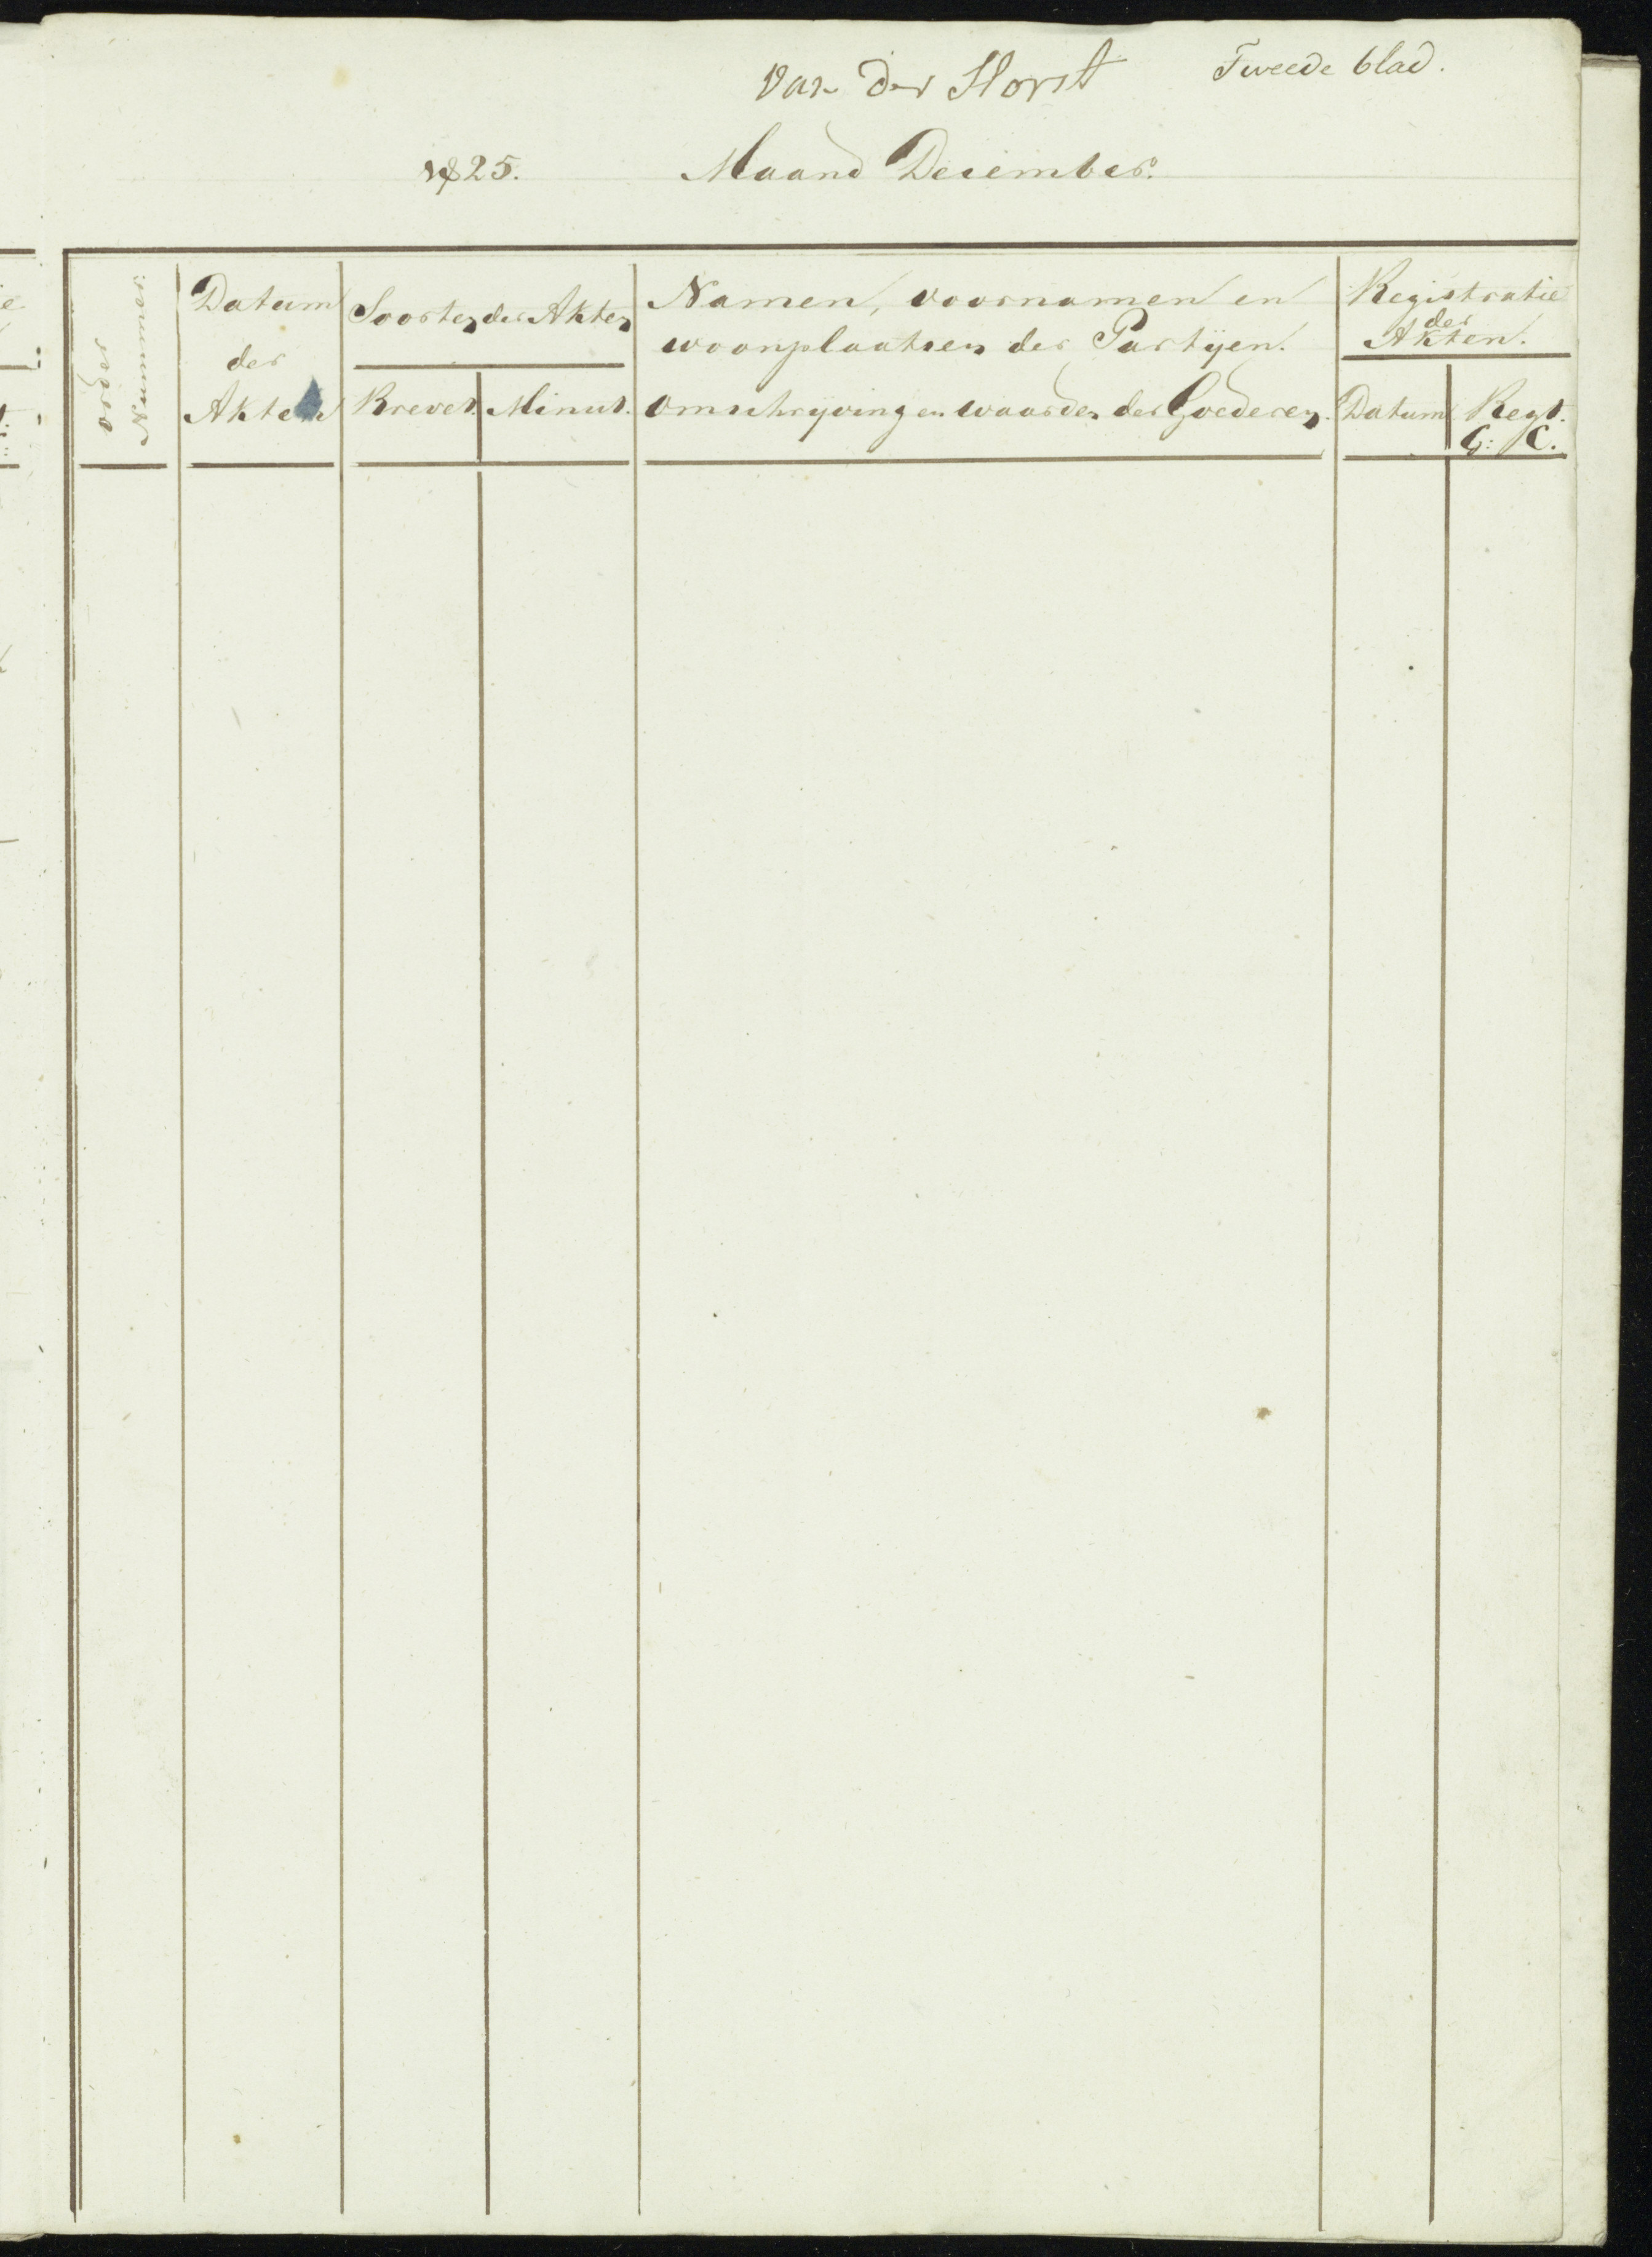 van der Horst
Tweede blad.
1825. Maand December.
order
Nummer:
Datum
der
Akten
Soorten der Akten
Brevet. Minut.
Namen, voornamen en
woonplaatsen der Partijen.
Omschrijving en waarden der Goederen.
Registratie
der
Akten.
Datum Regt.
G: C.